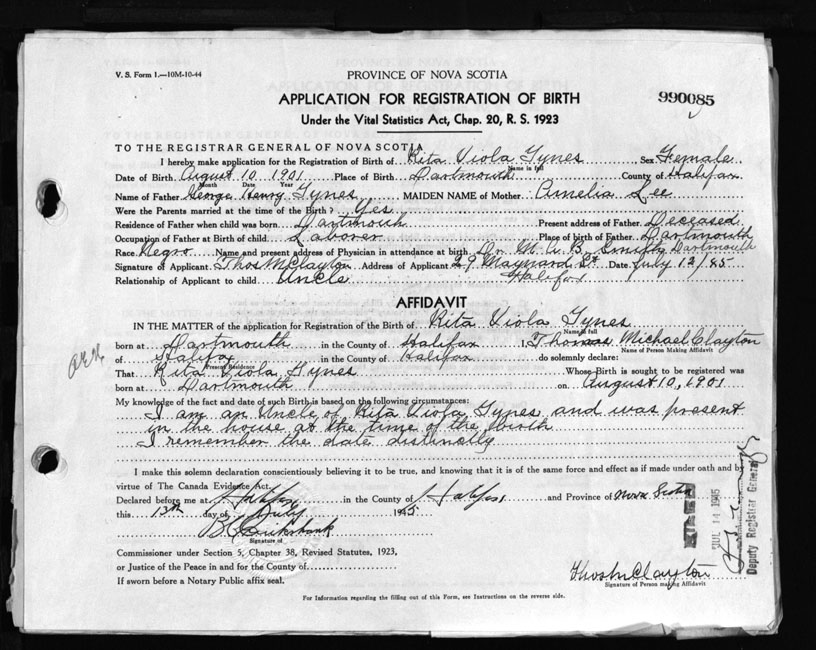 V. S. Form 1.—10M-10-44
PROVINCE OF NOVA SCOTIA
APPLICATION FOR REGISTRATION OF BIRTH
990085
Under the Vital Statistics Act, Chap. 20, R. S. 1923
TO THE REGISTRAR GENERAL OF NOVA SCOTIA
I hereby make application for the Registration of Birth of Rita Viola Tynes Sex Female
Name in full
Date of Birth August 10, 1901 Place of Birth Dartmouth County of Halifax
Month Date Year
Name of Father George Henry Tynes MAIDEN NAME of Mother Amelia Lee
Were the Parents married at the time of the Birth? Yes
Residence of Father when child was born Dartmouth Present address of Father Deceased
Occupation of Father at Birth of child Laborer Place of birth of Father Dartmouth
Race Negro Name and present address of Physician in attendance at birth Dr M. A. B. Smith Dartmouth
Signature of Applicant Thos M Clayton Address of Applicant 29 Maynard St Date July 12/45
Halifax
Relationship of Applicant to child Uncle
AFFIDAVIT
IN THE MATTER of the application for Registration of the Birth of Rita Viola Tynes
Name in full
born at Dartmouth in the County of Halifax I Thomas Michael Clayton
Name of Person Making Affidavit
of Halifax in the County of Halifax do solemnly declare:
Present Residence
That Rita Viola Tynes Whose Birth is sought to be registered was
born at Dartmouth on August 10, 1901
My knowledge of the fact and date of such Birth is based on the following circumstances:
I am an Uncle of Rita Viola Tynes and was present
in the house at the time of the birth
I remember the date distinctly
I make this solemn declaration conscientiously believing it to be true, and knowing that it is of the same force and effect as if made under oath and by
virtue of The Canada Evidence Act.
Declared before me at Halifax in the County of Halifax and Province of Nova Scotia
this 13th day of July 1945
Signature of
Commissioner under Section 5, Chapter 38, Revised Statutes, 1923,
or Justice of the Peace in and for the County of
If sworn before a Notary Public affix seal.
Thos M Clayton
Signature of Person making Affidavit
For Information regarding the filling out of this Form, see Instructions on the reverse side.
FILED
JUL 14 1945
Deputy Registrar General